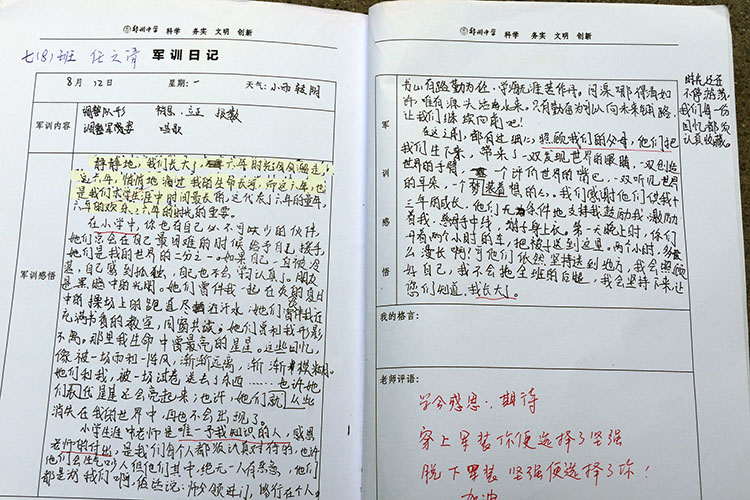 郑州中学 科学 务实 文明 创新
七(8)班 任之清 军训日记
8月12日 星期：一 天气：小雨转阴
军训内容
调整队形 稍息、立正 报数
调整宽窄 唱歌
军训感悟
静静地，我们长大了，六年时光
这六年，悄悄地淌过我的生命长河，而这六年，也
是我们求学生涯中时间最长的，这代表了六年的童年，
六年的欢乐，六年的时光的重要。
在小学中，你也有自己必不可缺少的伙伴，
她们总会在自己最困难的时候给予自己援手，
她们是我的世界的二分之一。如果自己一直被冷
退，自己感到孤独，自己也不会 认真了。朋友
是黑暗中的光团。她们曾伴我一起在炎的夏日
中的操场上的跑道尽 汗水；她们曾伴我在
充满书香的教室，同窗共读；她们曾和我形影
不离。那是我生命中曾最亮的星星。这些回忆，
像被一场雨和一阵风，渐渐远离，渐渐模糊。
她们和我，被一场试卷 去了东西……也许她
们 星星还会亮起来；也许，她们就 此
消失在我的世界中，再也不会出现了。
小学生涯中老师是唯一予我知识的人，感恩
老师的付出，是我们每个人都须认真对待的，也许
他们会生气 人但他们其中，绝无一人有恶意，他们
都是为我们啊。俗话说：师父领进门，修行在个人。
郑州中学 科学 务实 文明 创新
军训感悟
书山有路勤为径，学海无涯苦作舟。问渠哪得清如
许，唯有源头活水来。只有勤奋为引从向未来铺路，
让我们继续向前吧！
在这之前，都有过 照顾我们的父母，他们把
我们生下来，带来了一双发现世界的眼睛，一双创造
世界的手臂，一个评价世界的嘴巴，一双听见世界
的耳朵，一个梦 想的心。我们感谢他们供我十
三年的成长，他们无条件地支持我鼓励我激励
着我。慈母手中线，游子身上衣。第一天晚上时，你们
开着两个小时的车，把被子送到这里。两个小时，多
么漫长啊？可他们依然坚持送到地方，我会照顾
好自己，我不会拖全班的后腿，我会坚持下来让
您们知道，我长大了。
时光还在
不停
我们每一份
回忆都须
认真收藏。
我的格言：
老师评语：
学会感恩，期待
穿上军装你便选择了坚强
脱下军装坚强便选择了你！
加油